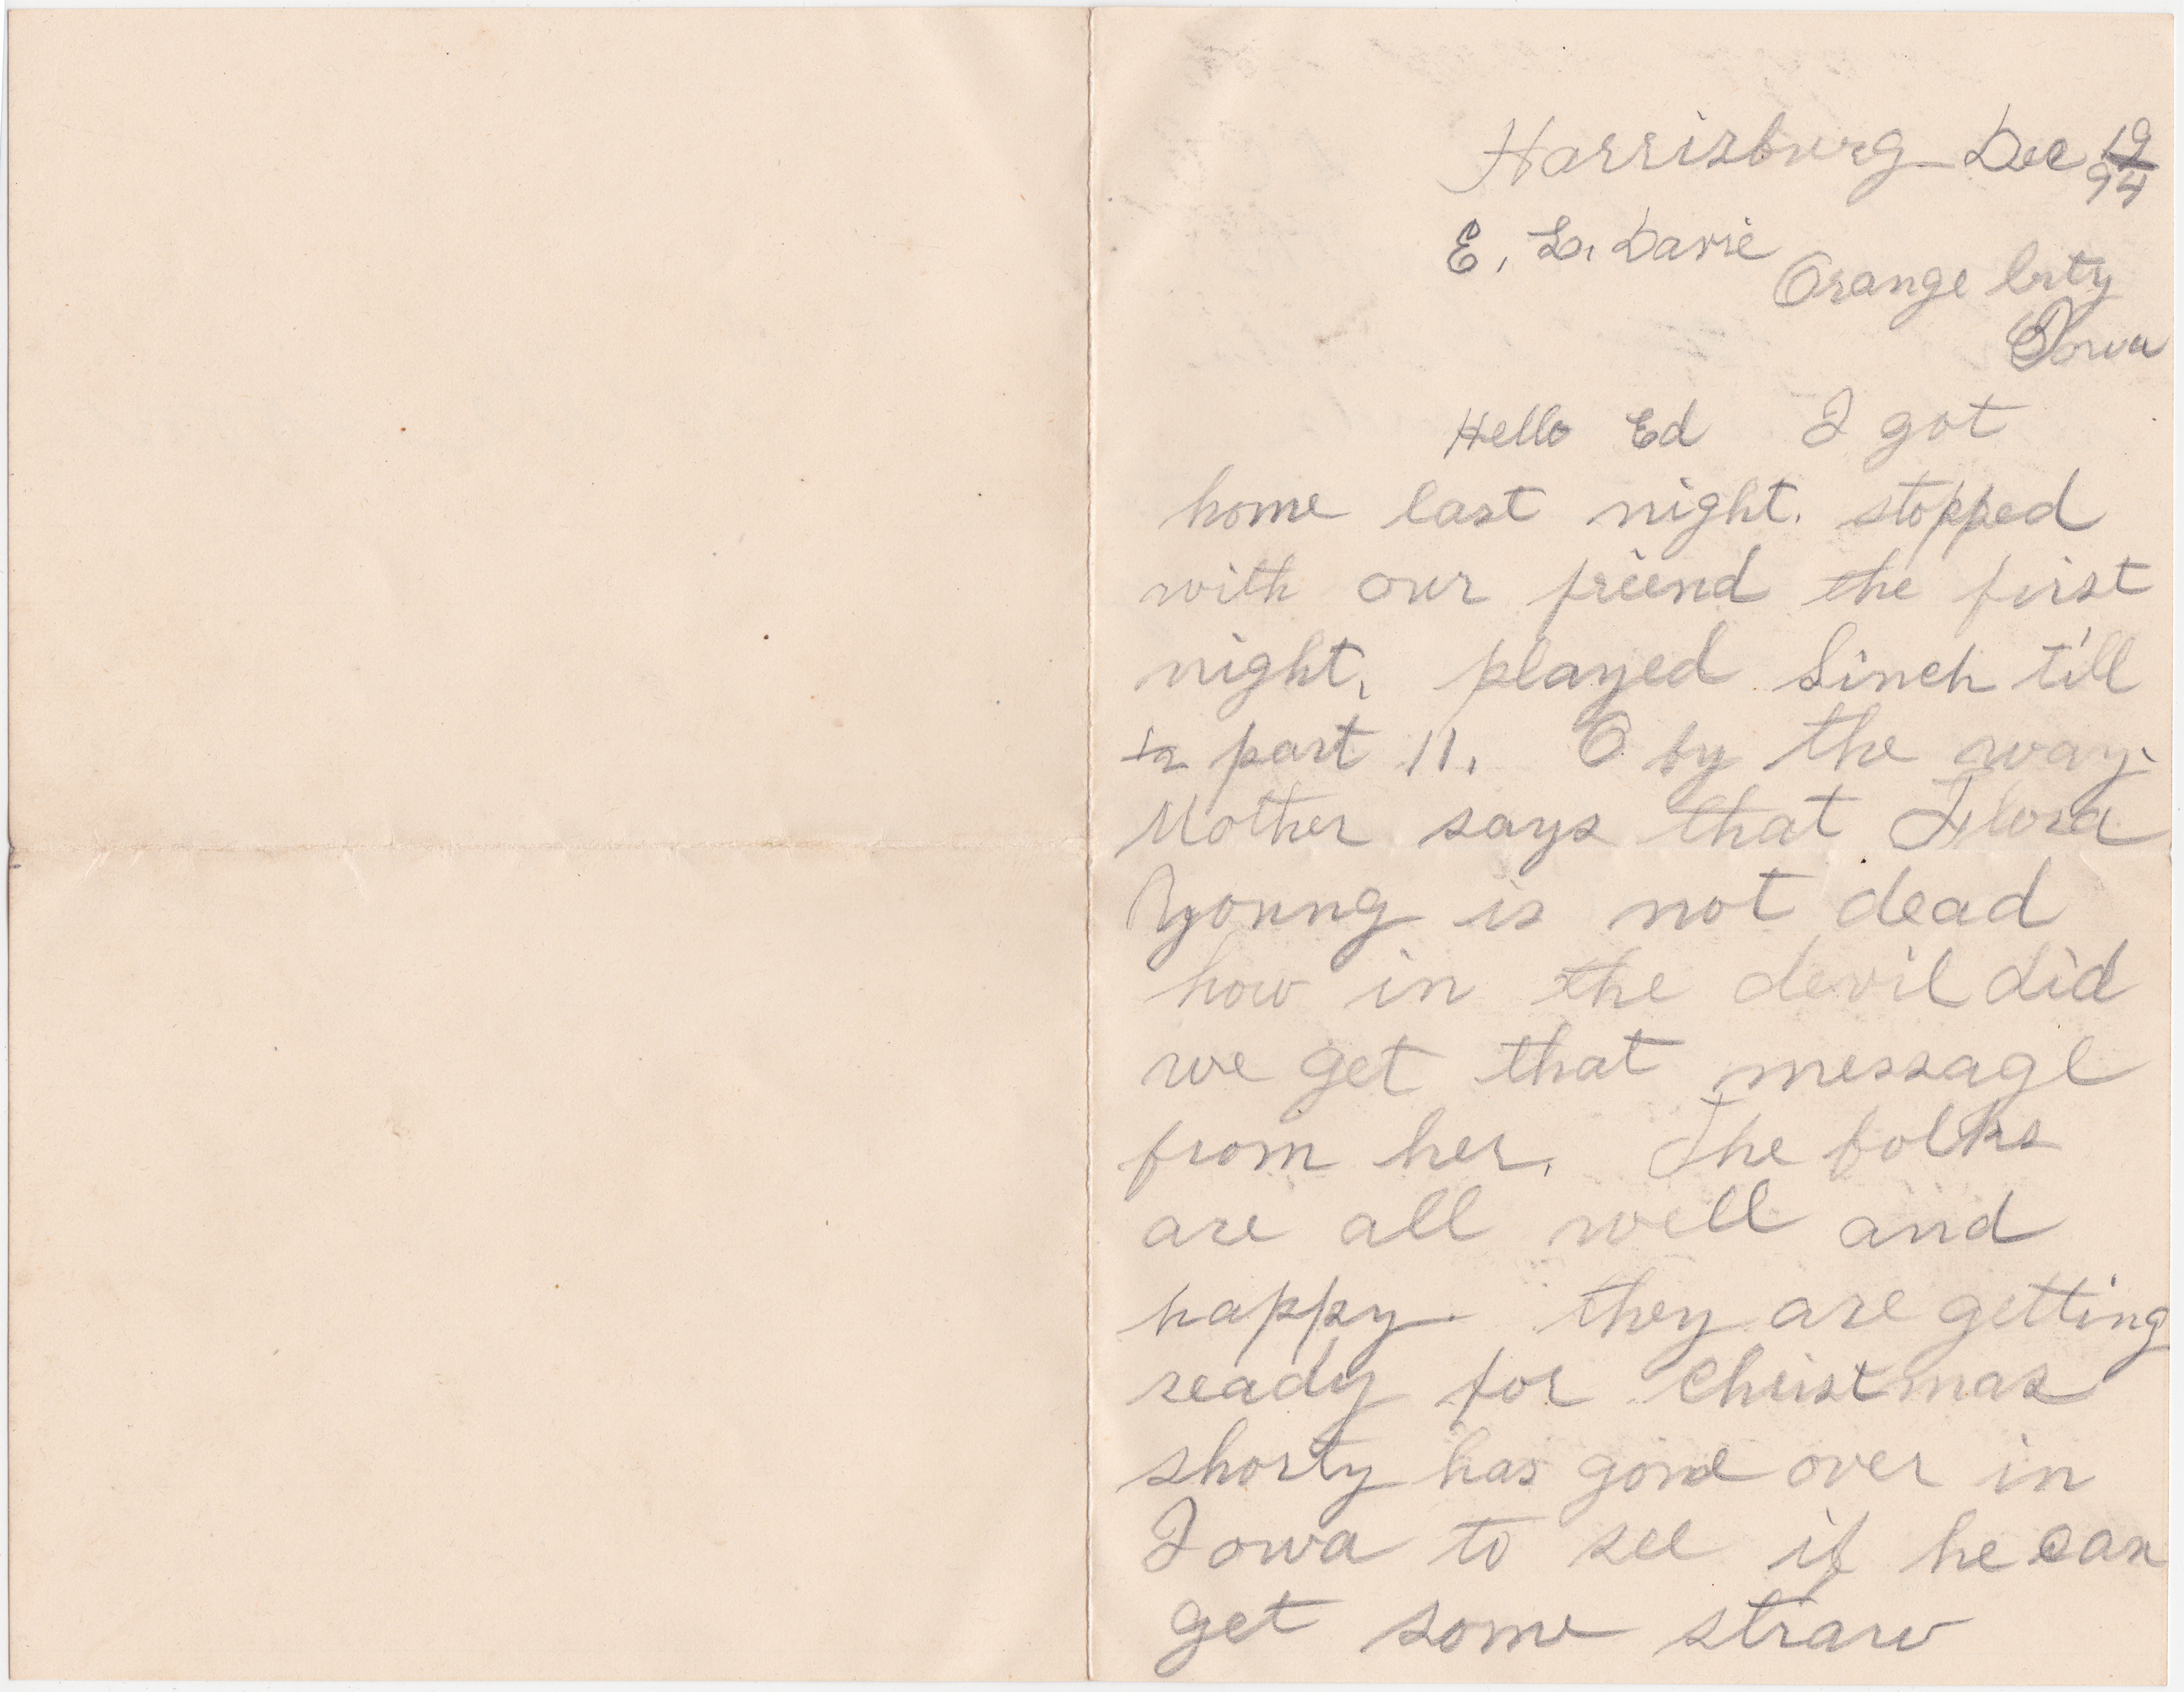 Harrisburg Dec 19/94
E. L. Davie
Orange City
Iowa
Hello Ed I got
home last night. stopped
with our friend the first
night. played Sinch till
1/2 past 11. O by the way.
Mother says that Flora
Young is not dead
how in the devil did
we get that message
from her. The folks
are all well and
happy. they are getting
ready for Christmas
shorty has gone over in
Iowa to see if he can
get some straw